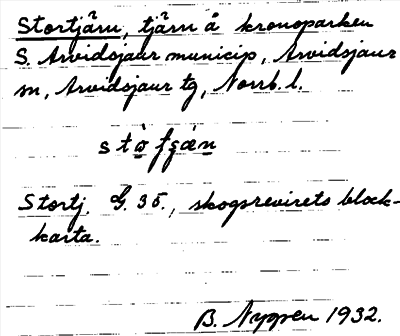 Stortjärn, tjärn å kronoparken
S. Arvidsjaur municip, Arvidsjaur
sn, Arvidsjaur tg, Norrb. l.
Stortj. G. 35., skogsrevirets block-
karta.
B. Nygren 1932.